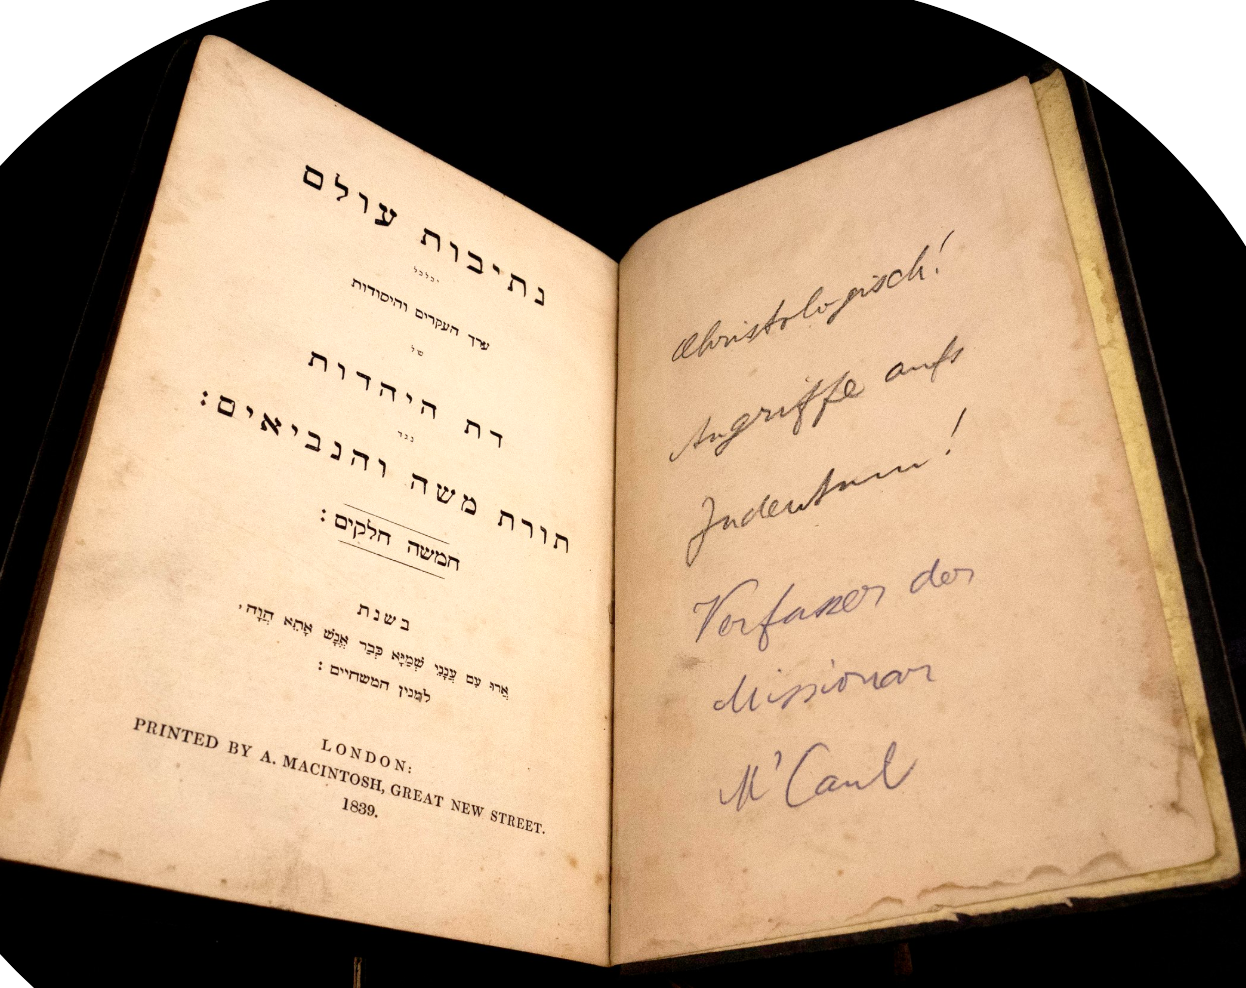 נתיבות עולם
יכלכל
ערך העקרים והיסודות
של
דת היהדות
נגד
תורת משה והנביאים:
חמשה חלקים:
בשנת
אֲרוּ עִם עֲנָנֵי שְׁמַיָּא כְּבַר אֱנָשׁ אָתֵא הֲוָה׳
למנין המשחיים:
LONDON:
PRINTED BY A. MACINTOSH, GREAT NEW STREET.
1839.
Christologisch!
Angriffe aufs
Judentum!
Verfasser der
Missionar
M'Caul